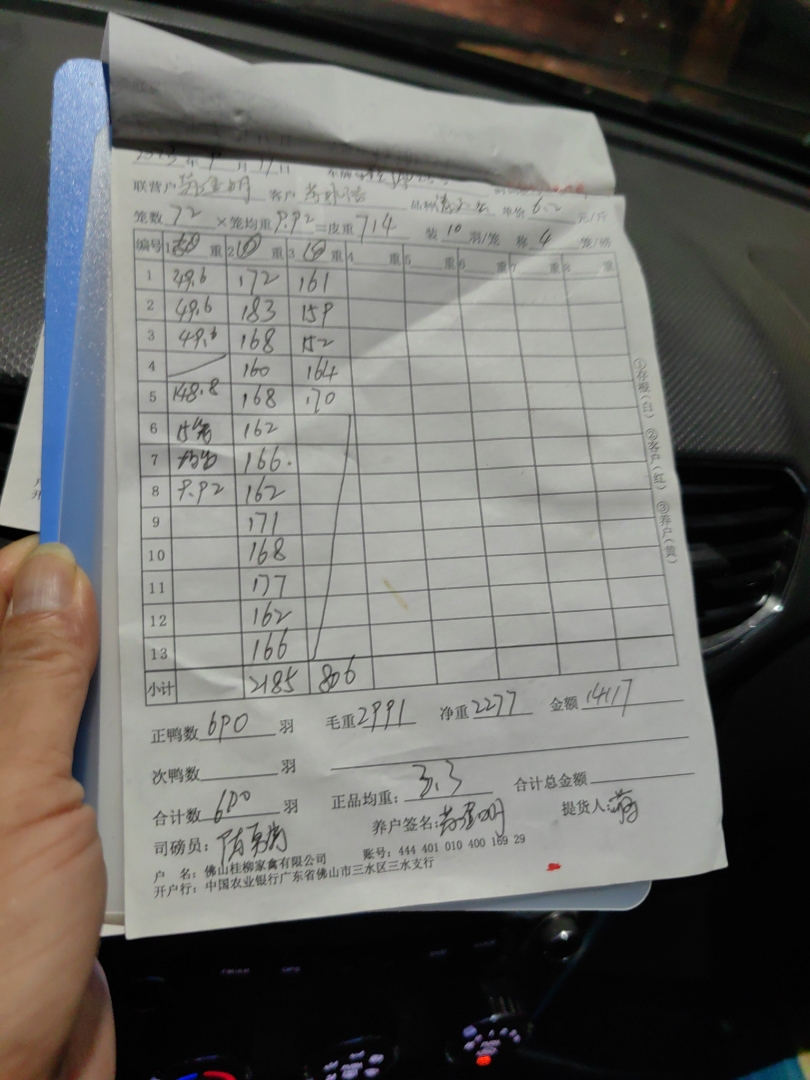 联营户 客户 单价 6.2 元/斤
笼数 72 ×笼均重 9.92 =皮重 714 装 10 羽/笼 称 4 笼/磅
编号 1 重 2 10 重 3 10 重 4 重 5 重 6 重 7 重 8 重
1 49.6 172 161
2 49.6 183 159
3 49.6 168 152
4 160 164
5 148.8 168 170
6 15笼 162
7 166
8 9.92 162
9 171
10 168
11 177
12 162
13 166
小计 2185 806
正鸭数 690 羽 毛重 2991 净重 2277 金额 14117
次鸭数 羽
合计数 690 羽 正品均重: 3.3 合计总金额
司磅员: 养户签名: 提货人:
户 名: 佛山桂柳家禽有限公司 账号: 444 401 010 400 169 29
开户行: 中国农业银行广东省佛山市三水区三水支行
①存根(白) ②客户(红) ③养户(黄)